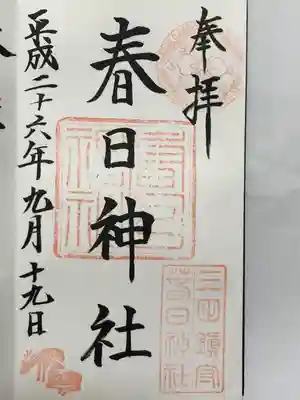 奉拝
春日神社
平成二十六年九月十九日
三田鎮守
春日神社